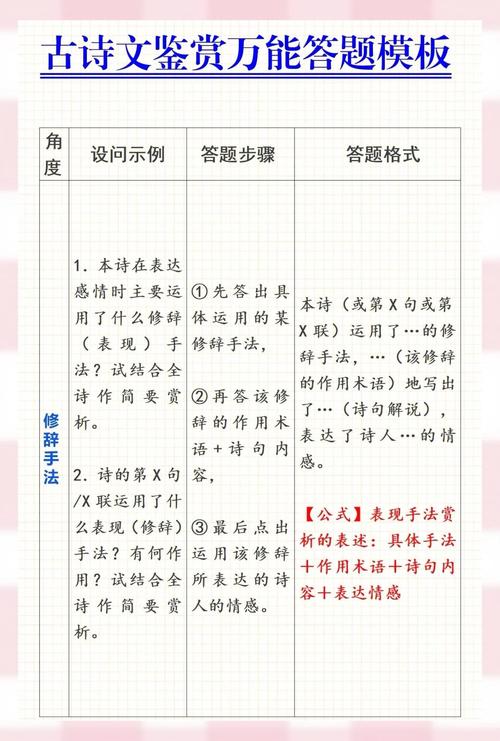 古诗文鉴赏万能答题模板
角度
设问示例
答题步骤
答题格式
修辞手法
1. 本诗在表达
感情时主要运
用了什么修辞
（表现）手
法？试结合全
诗作简要赏
析。
2. 诗的第X句
/X联运用了什
么表现（修辞）
手法？有何作
用？试结合全
诗作简要赏
析。
①先答出具
体运用的某
修辞手法，
②再答该修
辞的作用术
语+诗句内
容，
③最后点出
运用该修辞
所表达的诗
人的情感。
本诗（或第X句或第
X联）运用了…的修
辞手法，…（该修辞
的作用术语）地写出
了…（诗句解说），
表达了诗人…的情
感。
【公式】表现手法赏
析的表述：具体手法
＋作用术语＋诗句内
容＋表达情感